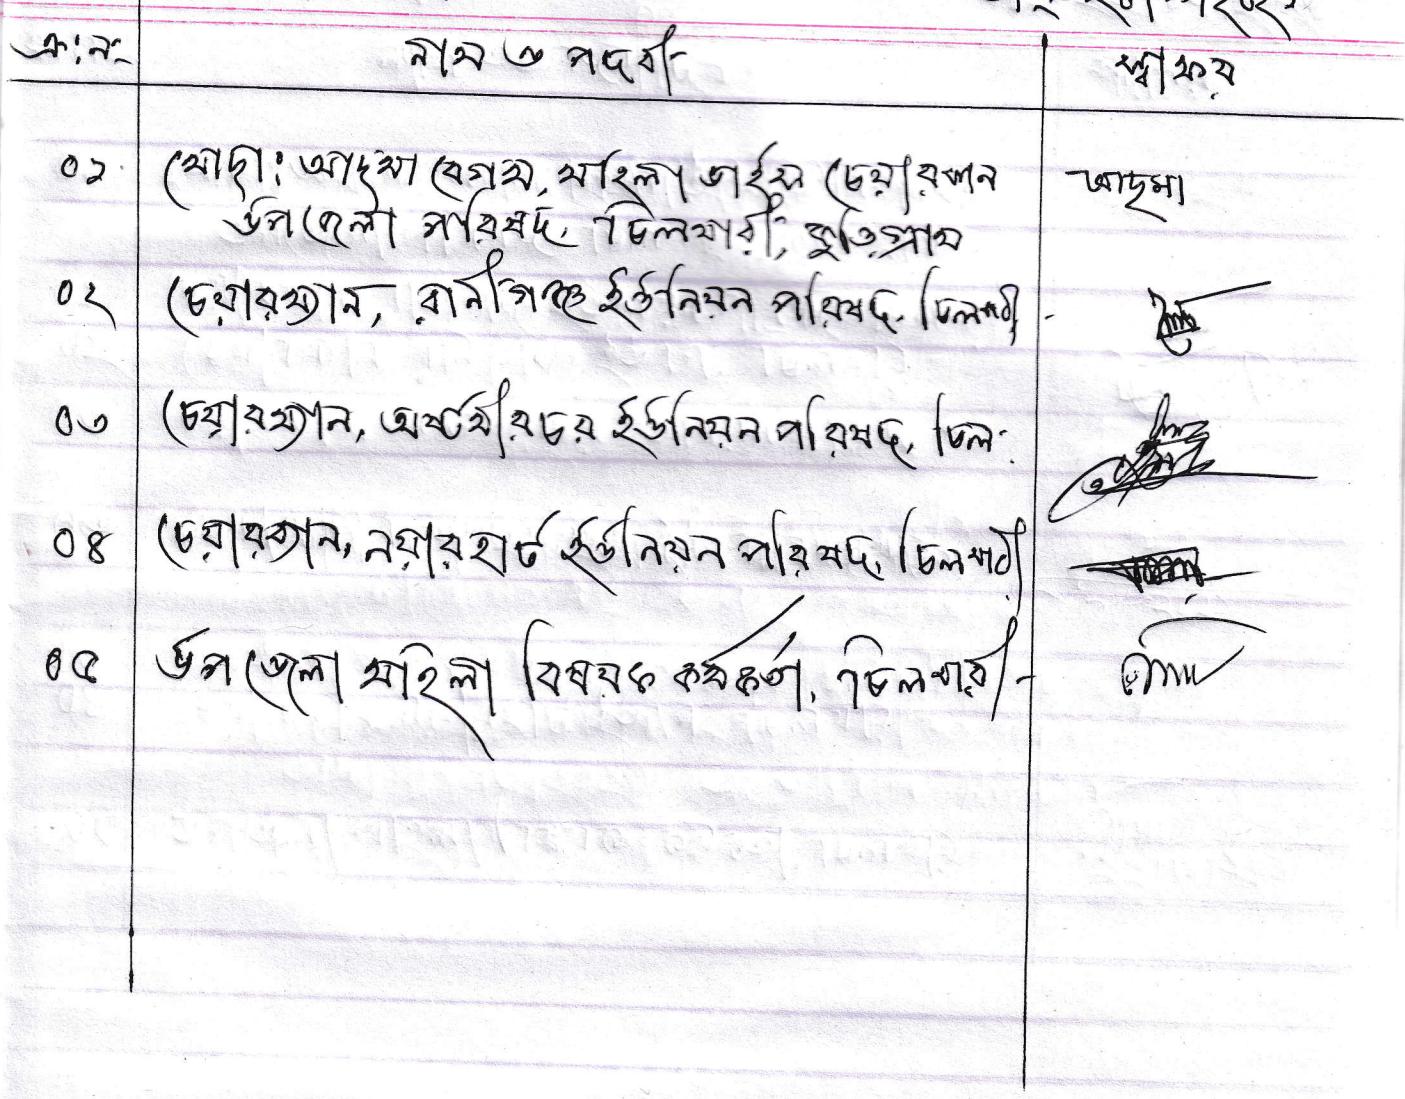 ক্র: নং নাম ও পদবী স্বাক্ষর
০১ মোছা: আছমা বেগম, মহিলা ভাইস চেয়ারম্যান আছমা
উপজেলা পরিষদ, চিলমারী, কুড়িগ্রাম
০২ চেয়ারম্যান, রানীগঞ্জ ইউনিয়ন পরিষদ, চিলমারী
০৩ চেয়ারম্যান, অষ্টমীরচর ইউনিয়ন পরিষদ, চিল:
০৪ চেয়ারম্যান, নয়ারহাট ইউনিয়ন পরিষদ, চিলমারী
০৫ উপজেলা মহিলা বিষয়ক কর্মকর্তা, চিলমারী